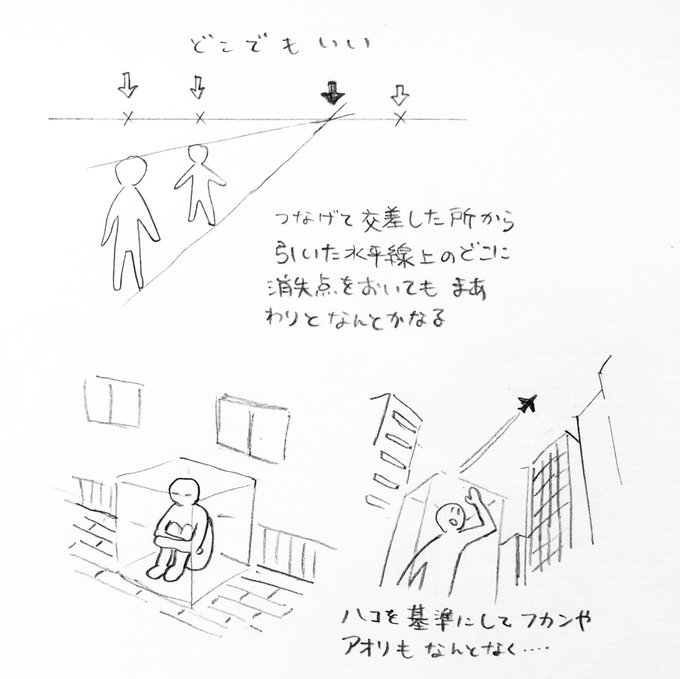 どこでもいい
つなげて交差した所から
引いた水平線上のどこに
消失点をおいても まあ
わりとなんとかなる
ハコを基準にしてフカンや
アオリもなんとなく‥‥